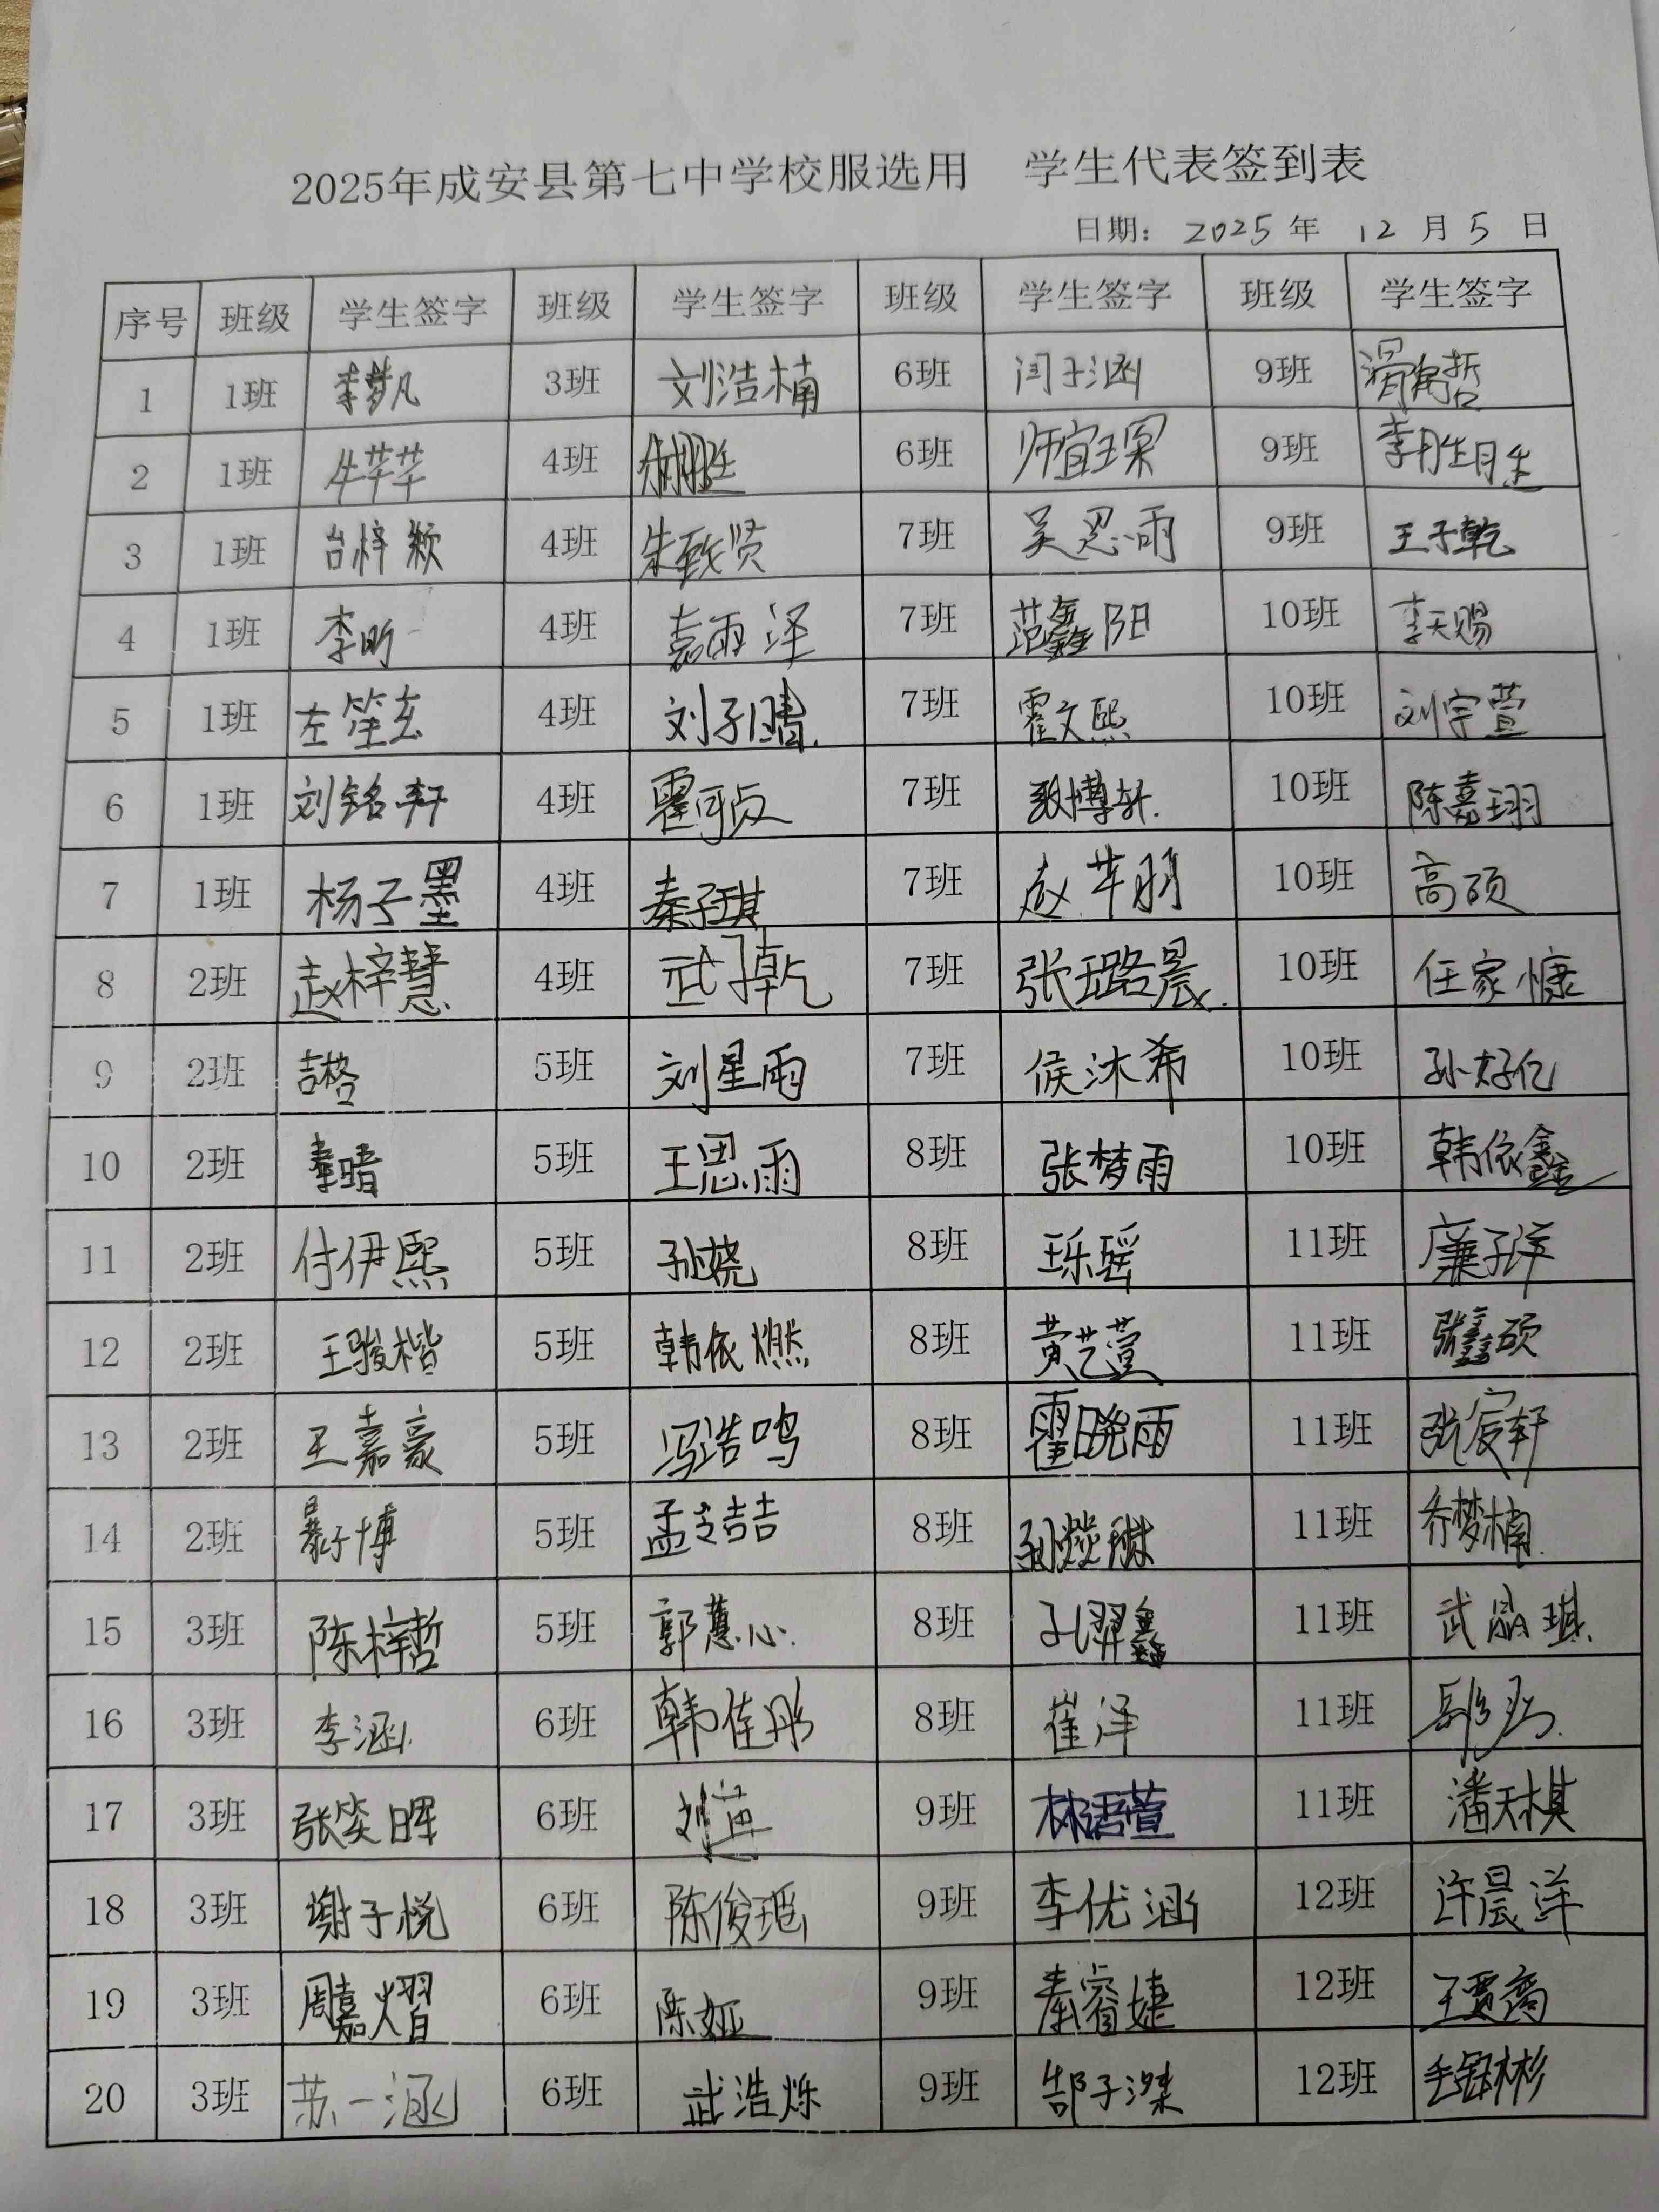 2025年成安县第七中学校服选用 学生代表签到表
日期: 2025 年 12 月 5 日
序号 班级 学生签字 班级 学生签字 班级 学生签字 班级 学生签字
1 1班 李梦凡 3班 刘浩楠 6班 闫子涵 9班
2 1班 牛芊芊 4班 6班 师宜琛 9班 李胜月生
3 1班 台梓颖 4班 朱致贤 7班 吴恩雨 9班 王子乾
4 1班 李昕 4班 嘉雨泽 7班 范鑫阳 10班 李天赐
5 1班 左笙玄 4班 刘子晴 7班 霍文熙 10班 刘宇萱
6 1班 刘铭轩 4班 霍可贞 7班 张博轩 10班 陈嘉翊
7 1班 杨子墨 4班 秦子琪 7班 赵芊羽 10班 高硕
8 2班 赵梓慧 4班 武子乾 7班 张璐晨 10班 任家慷
9 2班 5班 刘星雨 7班 侯沐希 10班 孙好亿
10 2班 秦晴 5班 王思雨 8班 张梦雨 10班 韩依鑫
11 2班 付伊熙 5班 孙娆 8班 王乐瑶 11班 廉子洋
12 2班 王骏楷 5班 韩依燃 8班 黄艺萱 11班 张鑫硕
13 2班 王嘉豪 5班 冯浩鸣 8班 霍晓雨 11班 张宸轩
14 2班 暴子博 5班 孟令喆 8班 11班 乔梦楠
15 3班 陈梓哲 5班 郭慧心 8班 孔羿鑫 11班 武晶琪
16 3班 李涵 6班 韩佳彤 8班 崔洋 11班
17 3班 张笑晖 6班 刘苒 9班 林语萱 11班 潘天棋
18 3班 谢子悦 6班 陈俊瑶 9班 李优涵 12班 许晨洋
19 3班 周嘉熠 6班 陈娅 9班 秦睿婕 12班
20 3班 苏一涵 6班 武浩烁 9班 郜子濴 12班